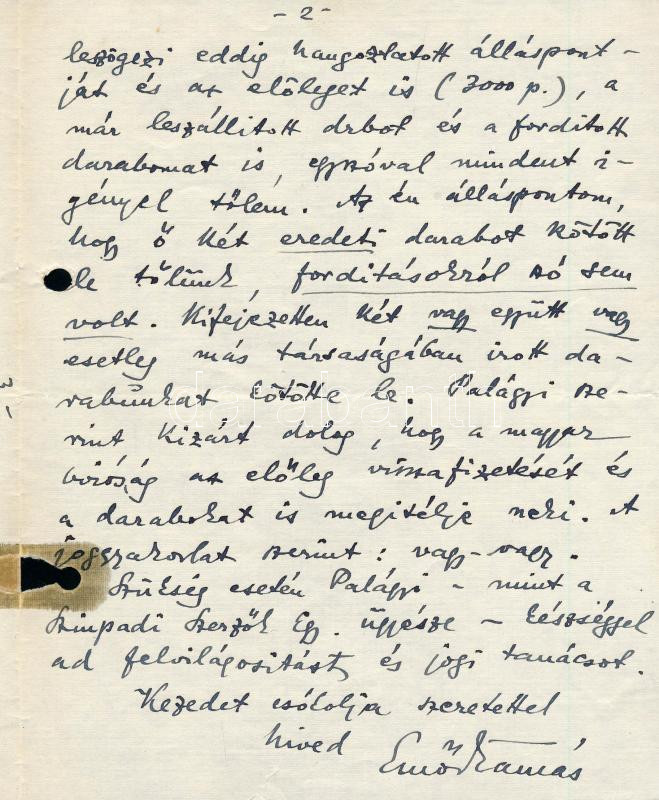 - 2 -
leszögezi eddig hangoztatott álláspont-
ját és az előleget is (3000 p.), a
már leszállított drbot és a fordított
darabomat is, egyszóval mindent i-
gényel tőlem. Az én álláspontom,
hogy ő két eredeti darabot kötött
le tőlünk, fordításokról szó sem
volt. Kifejezetten két vagy együtt vagy
esetleg más társaságában irott da-
rabunkat kötötte le. Palágyi sze-
rint kizárt dolog, hogy a magyar
bíróság az előleg visszafizetését és
a darabokat is megitélje neki. A
joggyakorlat szerint: vagy-vagy.
Szükség esetén Palágyi - mint a
Szinpadi Szerzők Egy. ügyésze - készséggel
ad felvilágositást és jogi tanácsot.
Kezedet csókolja szeretettel
hived
Emőd Tamás